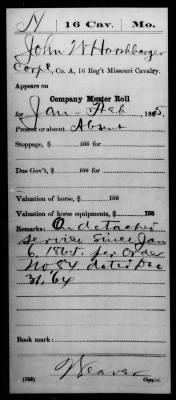 H | 16 Cav. | Mo.
John W Harshbarger
Corpl, Co. A, 16 Reg't Missouri Cavalry.
Appears on
Company Muster Roll
for Jan & Feb, 1865.
Present or absent Absent
Stoppage, $ 100 for
Due Gov't, $ 100 for
Valuation of horse, $ 100
Valuation of horse equipments, $ 100
Remarks: On detached
service since Jan
6 1865. per Order
No. 84. dated Dec
31, 64
Book mark:
Weaver
(359) Copyist.